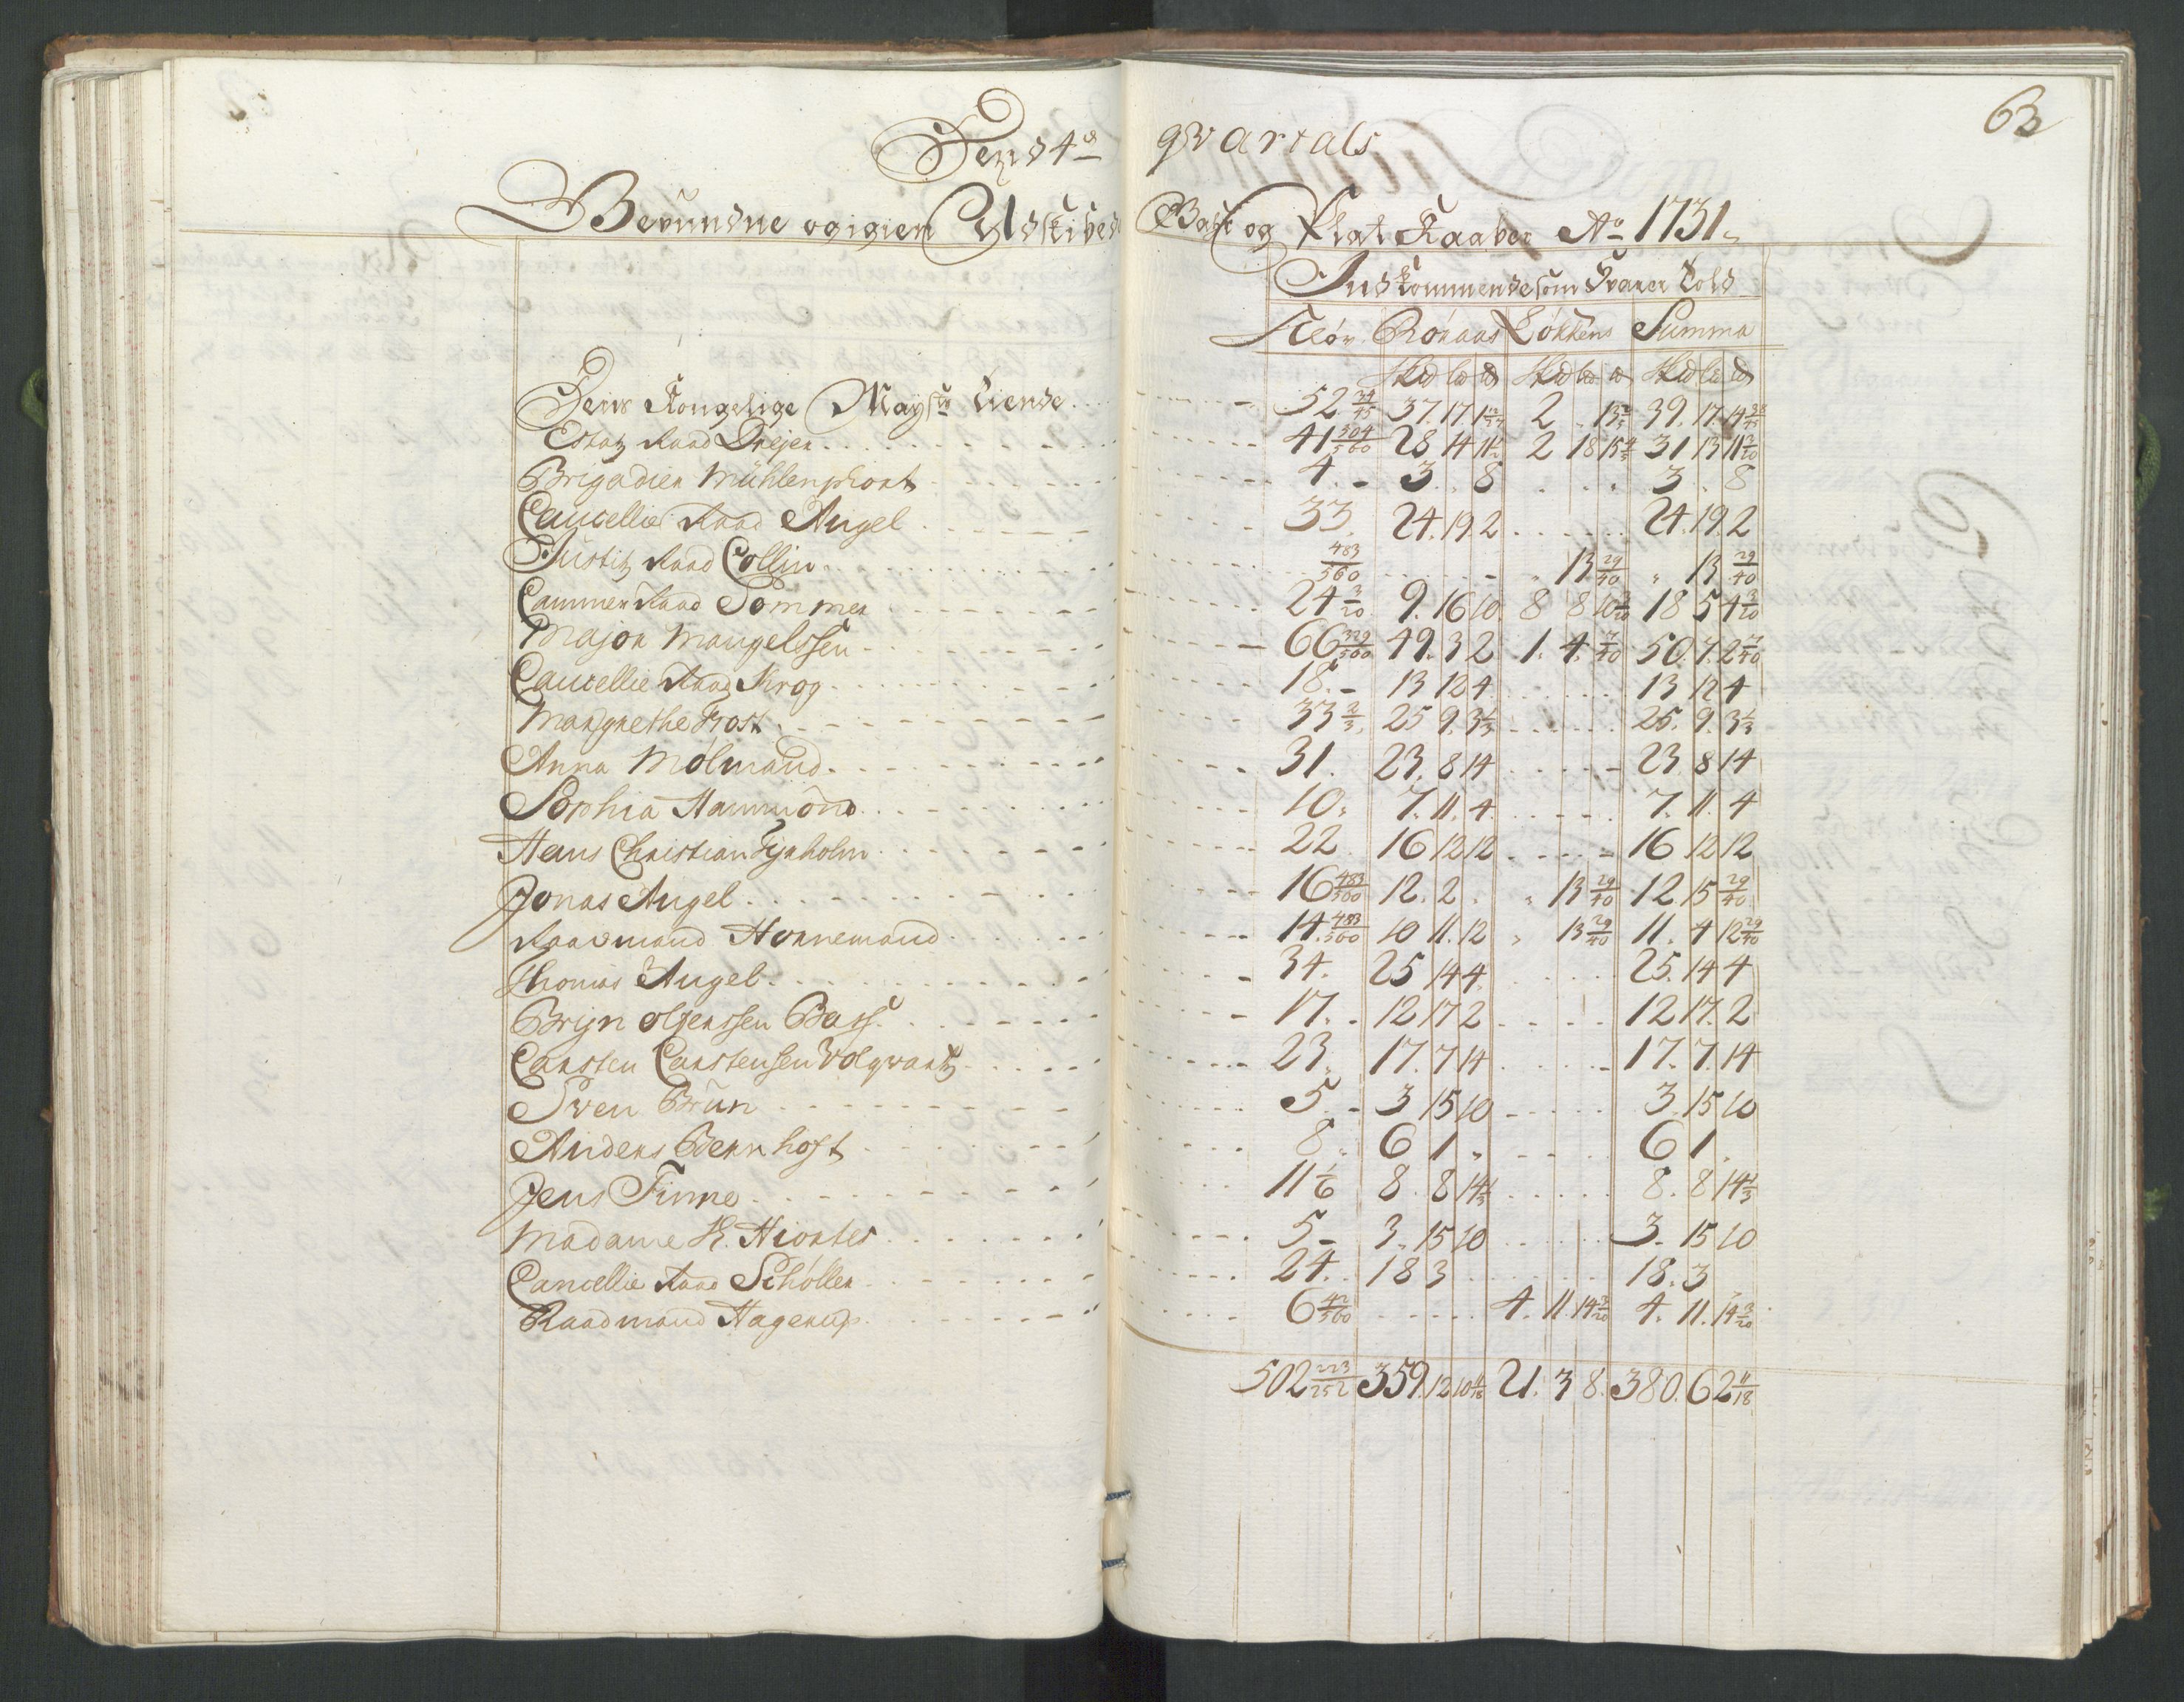 63
Dend 4de qvartals
Bevundne og igien Udskibede Bast og Plat Kaaber Ao 1731
Indkommende som Svarer Told
Kløv Röraas Løkkens Summa
Skd ld ℔ Skd ld ℔ Skd ld ℔
Deris Kongelige Maysts tiende 52 34/45 37. 17. 1 2 . 13 39. 17. 14
Estatz Raad Drejer 41 504/560 28 14 11 2 18 15 4/5 31 13 11 3/10
Brigadier Mühlenphort 4 3 . 8 3 . 8
Cancellie Raad Angel 33 24. 19. 2 24. 19. 2
Justitz Raad Collin 483/560 " 13 29/40 " 13 29/40
Cammer Raad Sommer 24 3/20 9. 16 10 8 8 10 3/20 18 5 4 3/20
Major Mangelssen 66 329/560 49. 3 2 1. 4. 7/40 50. 7. 2 7/40
Cancellie Raad Krog 18 13 12 4 13 12 4
Margrethe Frost 33 2/3 25 9. 3 1/3 25. 9. 3 1/3
Anna Mølmand 31. 23. 8 14 23 8 14
Sophia Hammond 10. 7. 11. 4 7. 11. 4
Hans Christian Tyrholm 22 16 12 12 16 12 12
Jonas Angel 16 483/560 12. 2 . " 13 29/40 12. 15 29/40
Raadmand Hornemand 14. 483/560 10 11. 12 " 13 29/40 11. 4 12 29/40
Thomas Angel 34. 25 14 4 25. 14 4
Bryn olfenssen Bass 17. 12 17 2 12 17. 2
Carsten Carstensen Volqvartz 23. 17. 7 14 17. 7. 14
Sven Brün 5 3 15 10 3. 15 10
Anders Bernhoft 8. 6 1 " 6 1
Jens Finne 11 1/6 8. 8 14 1/3 8. 8 14 1/3
Madame K. Hiorter 5 3. 15 10 3. 15 10
Cancellie Raad Schöller 24. 18 3 18. 3
Raadmand Hagerup 6 42/560 4. 11. 14 3/20 4. 11. 14 3/20
502 223/252 359. 12 10 11/18 21. 3 8. 380. 6 2 11/18